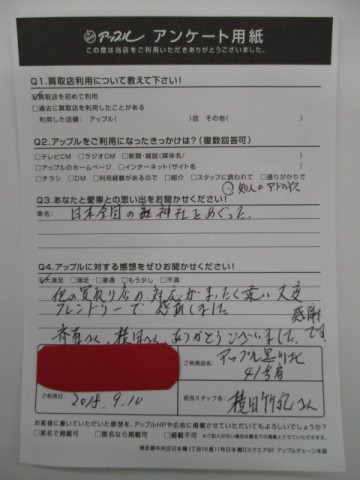 アップル アンケート用紙
この度は当店をご利用いただきありがとうございました。
Q1.買取店利用について教えて下さい!
☑買取店を初めて利用
□過去に買取店を利用したことがある
利用した店舗:アップル( )店 その他( )
Q2.アップルをご利用になったきっかけは?(複数回答可)
□テレビCM □ラジオCM □新聞・雑誌(媒体名/ )
□アップルのホームページ □インターネット(サイト名 )
□チラシ □DM □利用経験があるので □紹介 □スタッフに誘われて □通りがかりで
知人のアドバイス
Q3.あなたと愛車との思い出をお聞かせください!
車名:
日本全国の神社をめぐった。
Q4.アップルに対する感想をぜひお聞かせください!
☑満足 □満足 □普通 □もう少し □不満
他の買取り店の対応がまったく違い大変
フレンドリーで感動しました
感謝です。
さん、横田さん、ありがとうございました。
ご利用店名:
アップル黒川北
41号店
ご利用日:
2018.9.10
担当スタッフ名:
横田 さん
お客様に書いていただいた感想を、アップルHPや広告に掲載させていただいてもよろしいでしょうか?
□実名で掲載可 □匿名なら掲載可 □掲載不可 ※ご記入がない場合は匿名での掲載とさせていただきます。
東京都中央区日本橋1丁目16番11号日本橋DスクエアSF アップルチェーン本部